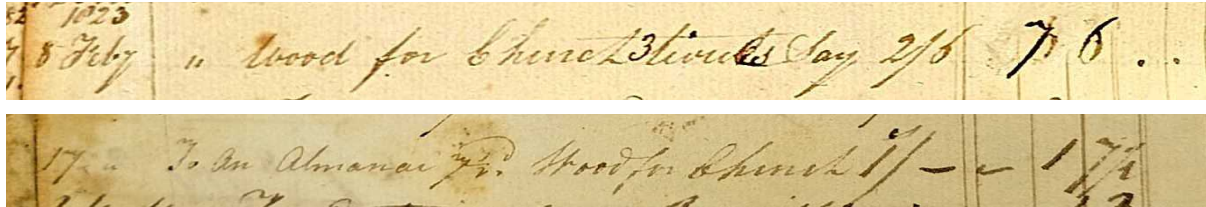 1823
8 Feby " Wood for Church 3 times Say 2/6 7 6 . .
17 " To An Almanac 7½d. Wood for Church 1/ — " 1 7½